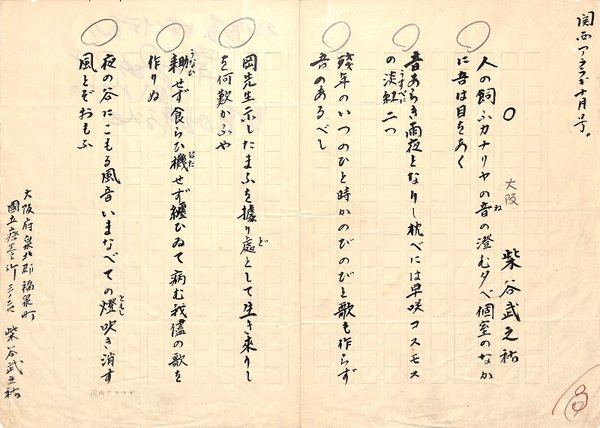 関西アララギ十月号。
大阪 柴谷武之祐
○
人の飼ふカナリヤの音の澄む夕べ個室のなか
に吾は目をあく
音あらき雨夜となりし枕べには早咲コスモス
の淡紅二つ
残年のいつのひと時かのびのびと歌も作らず
吾のあるべし
岡先生示したまふを據り處として生き来りし
を何歎かふや
耕せず食らひ機せず纏ひゐて病む我儘の歌を
作りゐ
夜の谷にこもる風音いまなべての燈吹き消す
風とぞおもふ
大阪府泉北郡福泉町
国立療養所
柴谷武之祐
関西アララギ